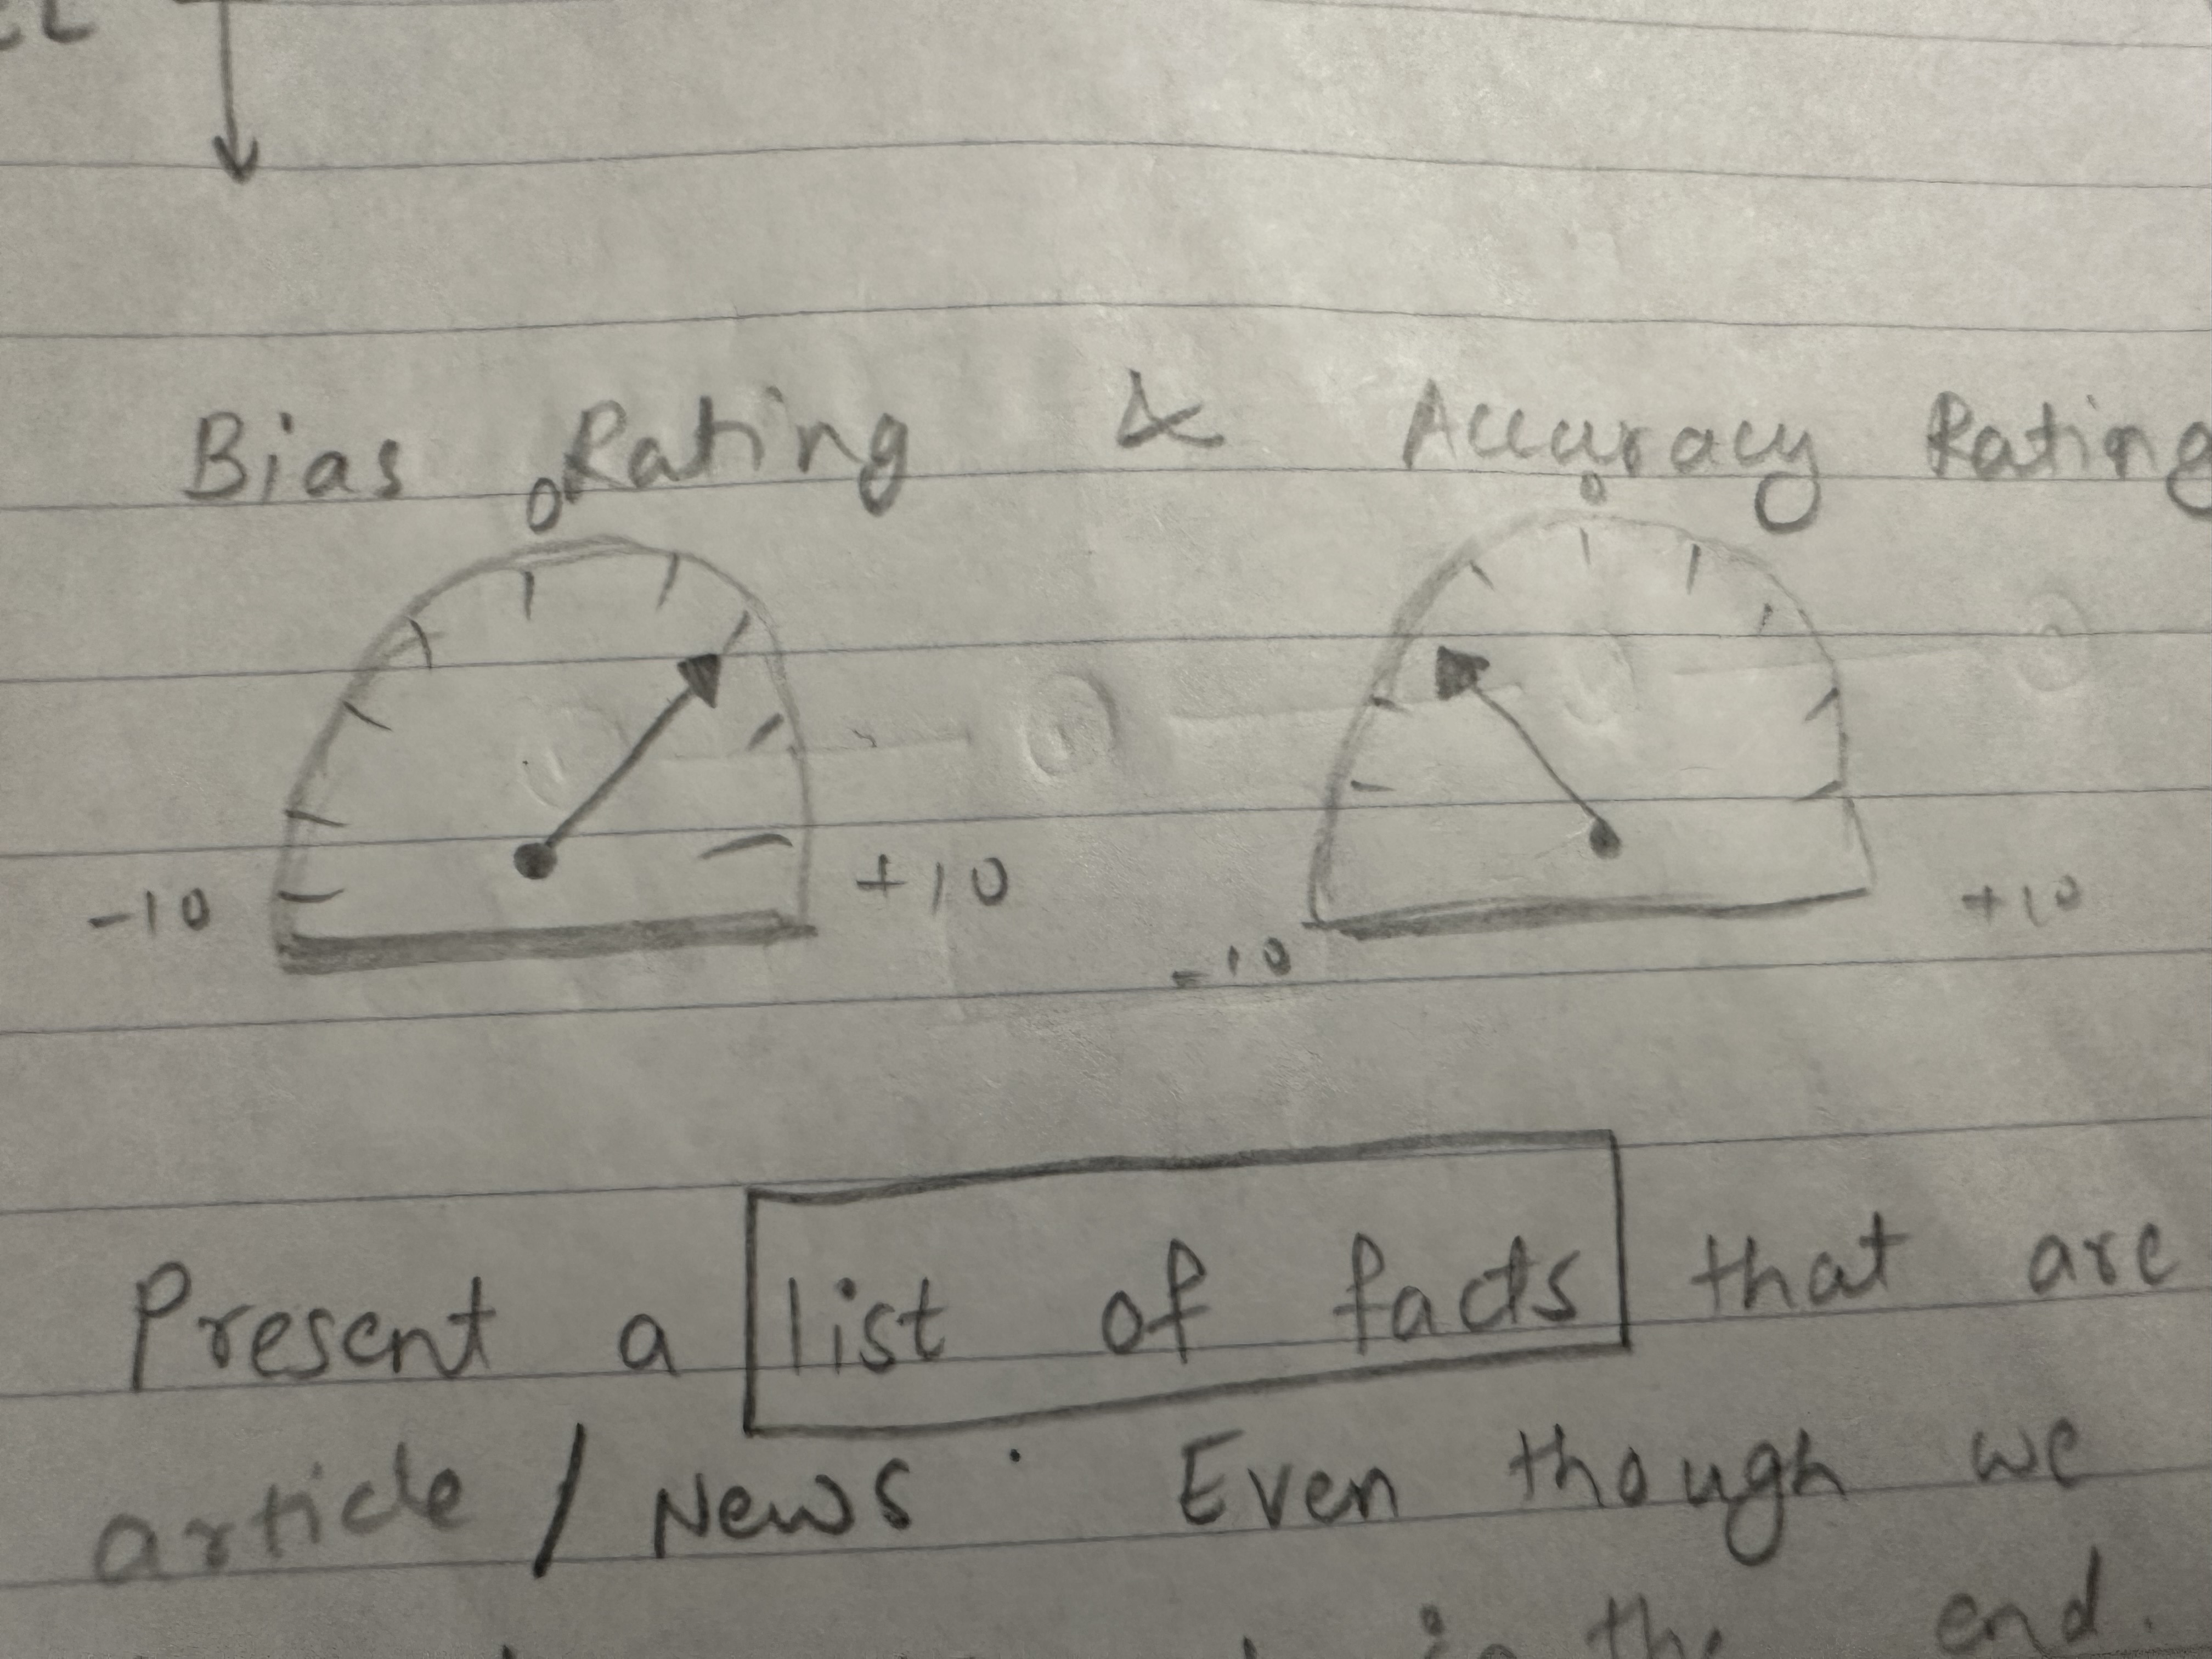 Bias Rating & Accuracy Rating
0 0
-10 +10 -10 +10
Present a list of facts that are
article / News. Even though we
in the end.